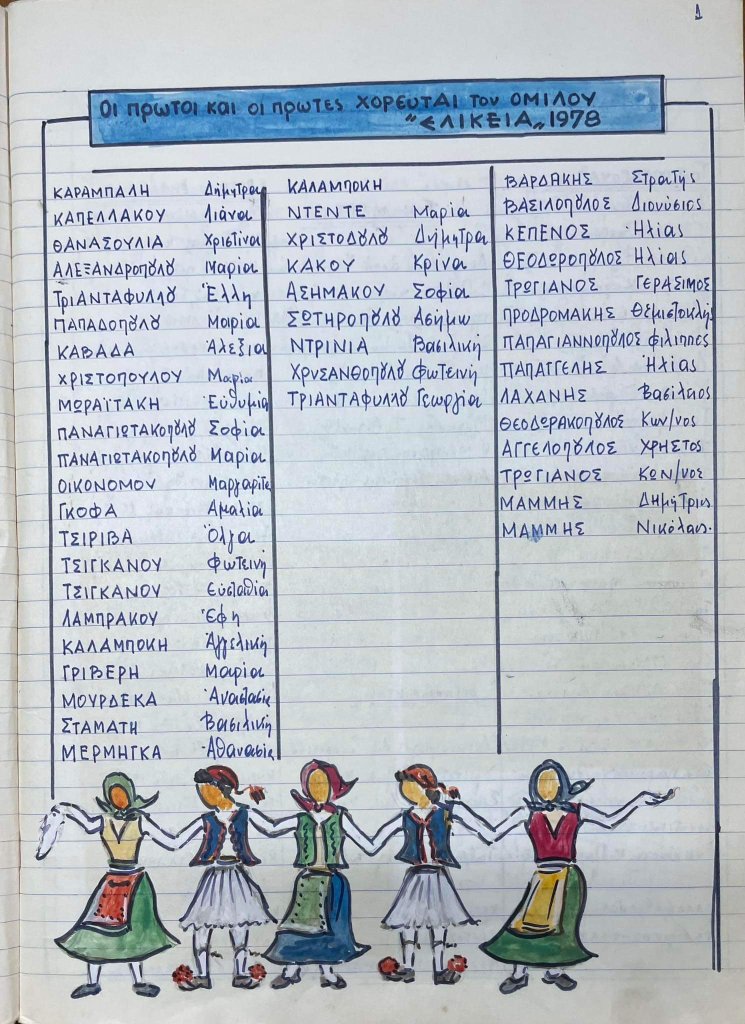 1
Οι πρωτοι και οι πρωτες χορευται του ομιλου
"ΕΛΙΚΕΙΑ„ 1978
ΚΑΡΑΜΠΑΛΗ Δήμητρα
ΚΑΠΕΛΛΑΚΟΥ Λιάνα
ΘΑΝΑΣΟΥΛΙΑ Χριστίνα
ΑΛΕΞΑΝΔΡΟΠΟΥΛΟΥ Μαρία
ΤΡΙΑΝΤΑΦΥΛΛΟΥ Έλλη
ΠΑΠΑΔΟΠΟΥΛΟΥ Μαρία
ΚΑΒΑΔΑ Αλεξία
ΧΡΙΣΤΟΠΟΥΛΟΥ Μαρία
ΜΩΡΑΪΤΑΚΗ Εύθυμία
ΠΑΝΑΓΙΩΤΑΚΟΠΟΥΛΟΥ Σοφία
ΠΑΝΑΓΙΩΤΑΚΟΠΟΥΛΟΥ Μαρία
ΟΙΚΟΝΟΜΟΥ Μαργαρίτα
ΓΚΟΦΑ Αμαλία
ΤΣΙΡΙΒΑ Όλγα
ΤΣΙΓΚΑΝΟΥ Φωτεινή
ΤΣΙΓΚΑΝΟΥ Εύσταθία
ΛΑΜΠΡΑΚΟΥ Έφη
ΚΑΛΑΜΠΟΚΗ Άγγελική
ΓΡΙΒΕΡΗ Μαρία
ΜΟΥΡΔΕΚΑ Άναστασία
ΣΤΑΜΑΤΗ Βασιλική
ΜΕΡΜΗΓΚΑ Αθανασία
ΚΑΛΑΜΠΟΚΗ
ΝΤΕΝΤΕ Μαρία
ΧΡΙΣΤΟΔΟΥΛΟΥ Δήμητρα
ΚΑΚΟΥ Κρίνα
ΑΣΗΜΑΚΟΥ Σοφία
ΣΩΤΗΡΟΠΟΥΛΟΥ Ασήμω
ΝΤΡΙΝΙΑ Βασιλική
ΧΡΥΣΑΝΘΟΠΟΥΛΟΥ Φωτεινή
ΤΡΙΑΝΤΑΦΥΛΛΟΥ Γεωργία
ΒΑΡΔΑΚΗΣ Στρατής
ΒΑΣΙΛΟΠΟΥΛΟΣ Διονύσιος
ΚΕΠΕΝΟΣ Ηλίας
ΘΕΟΔΩΡΟΠΟΥΛΟΣ Ηλίας
ΤΡΩΓΙΑΝΟΣ ΓΕΡΑΣΙΜΟΣ
ΠΡΟΔΡΟΜΑΚΗΣ Θεμιστοκλής
ΠΑΠΑΓΙΑΝΝΟΠΟΥΛΟΣ φίλιππος
ΠΑΠΑΓΓΕΛΗΣ Ηλίας
ΛΑΧΑΝΗΣ Βασίλειος
ΘΕΟΔΩΡΑΚΟΠΟΥΛΟΣ Κων/νος
ΑΓΓΕΛΟΠΟΥΛΟΣ ΧΡΗΣΤΟΣ
ΤΡΩΓΙΑΝΟΣ ΚΩΝ/νος
ΜΑΜΜΗΣ Δημήτριος
ΜΑΜΜΗΣ Νικόλαος.